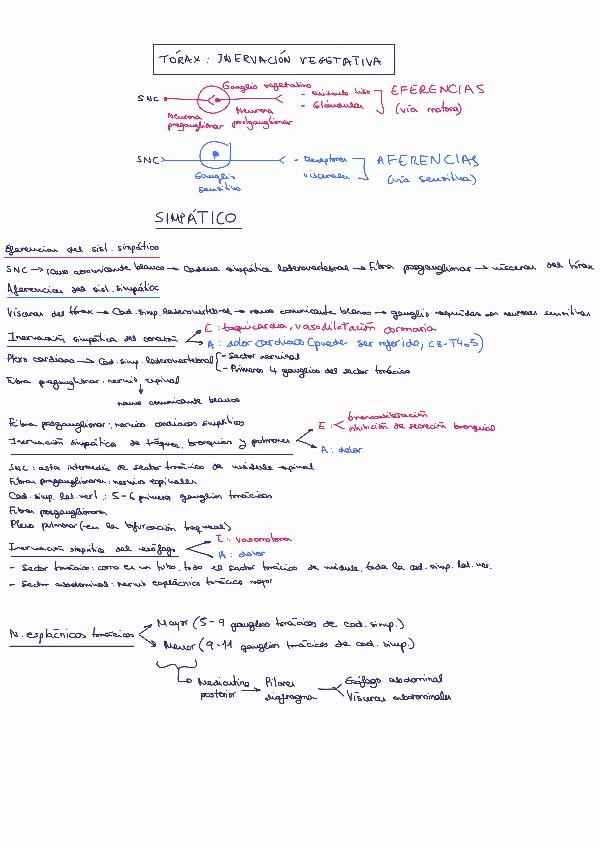 TÓRAX: INERVACIÓN VEGETATIVA
Ganglio vegetativo
SNC
- Músculo liso
- Glándulas
EFERENCIAS
(vía motora)
Neurona preganglionar
Neurona postganglionar
SNC
- Receptores viscerales
AFERENCIAS
(vía sensitiva)
Ganglio sensitivo
SIMPÁTICO
Eferencias del sist. simpático
SNC → ramo comunicante blanco → Cadena simpática laterovertebral → Fibra posganglionar → vísceras del tórax
Aferencias del sist. simpático
Vísceras del tórax → Cad. simp. laterovertebral → ramo comunicante blanco → ganglio raquídeo en neuronas sensitivas
Inervación simpática del corazón
E: taquicardia, vasodilatación coronaria
A: dolor cardíaco (puede ser referido, C8-T4o5)
Plexo cardíaco → Cad. simp. laterovertebral
- Sector cervical
- Primeros 4 ganglios del sector torácico
Fibra preganglionar: nervio espinal
ramo comunicante blanco
Fibra posganglionar: nervios cardíacos simpáticos
E: broncodilatación
inhibición de secreción bronquial
Inervación simpática de tráquea, bronquios y pulmones
A: dolor
SNC: asta intermedia de sector torácico de médula espinal
Fibras preganglionares: nervios espinales
Cad. simp. lat. vert.: 5-6 primeros ganglios torácicos
Fibras posganglionares
Plexo pulmonar (en la bifurcación traqueal)
Inervación simpática del esófago
E: vasomotora
A: dolor
- Sector torácico: como es un tubo, todo el sector torácico de médula, toda la cad. simp. lat. ver.
- Sector abdominal: nervio esplácnico torácico mayor
N. esplácnicos torácicos
Mayor (5-9 ganglios torácicos de cad. simp.)
Menor (9-11 ganglios torácicos de cad. simp.)
Mediastino posterior → Pilares diafragma
Esófago abdominal
Vísceras abdominales